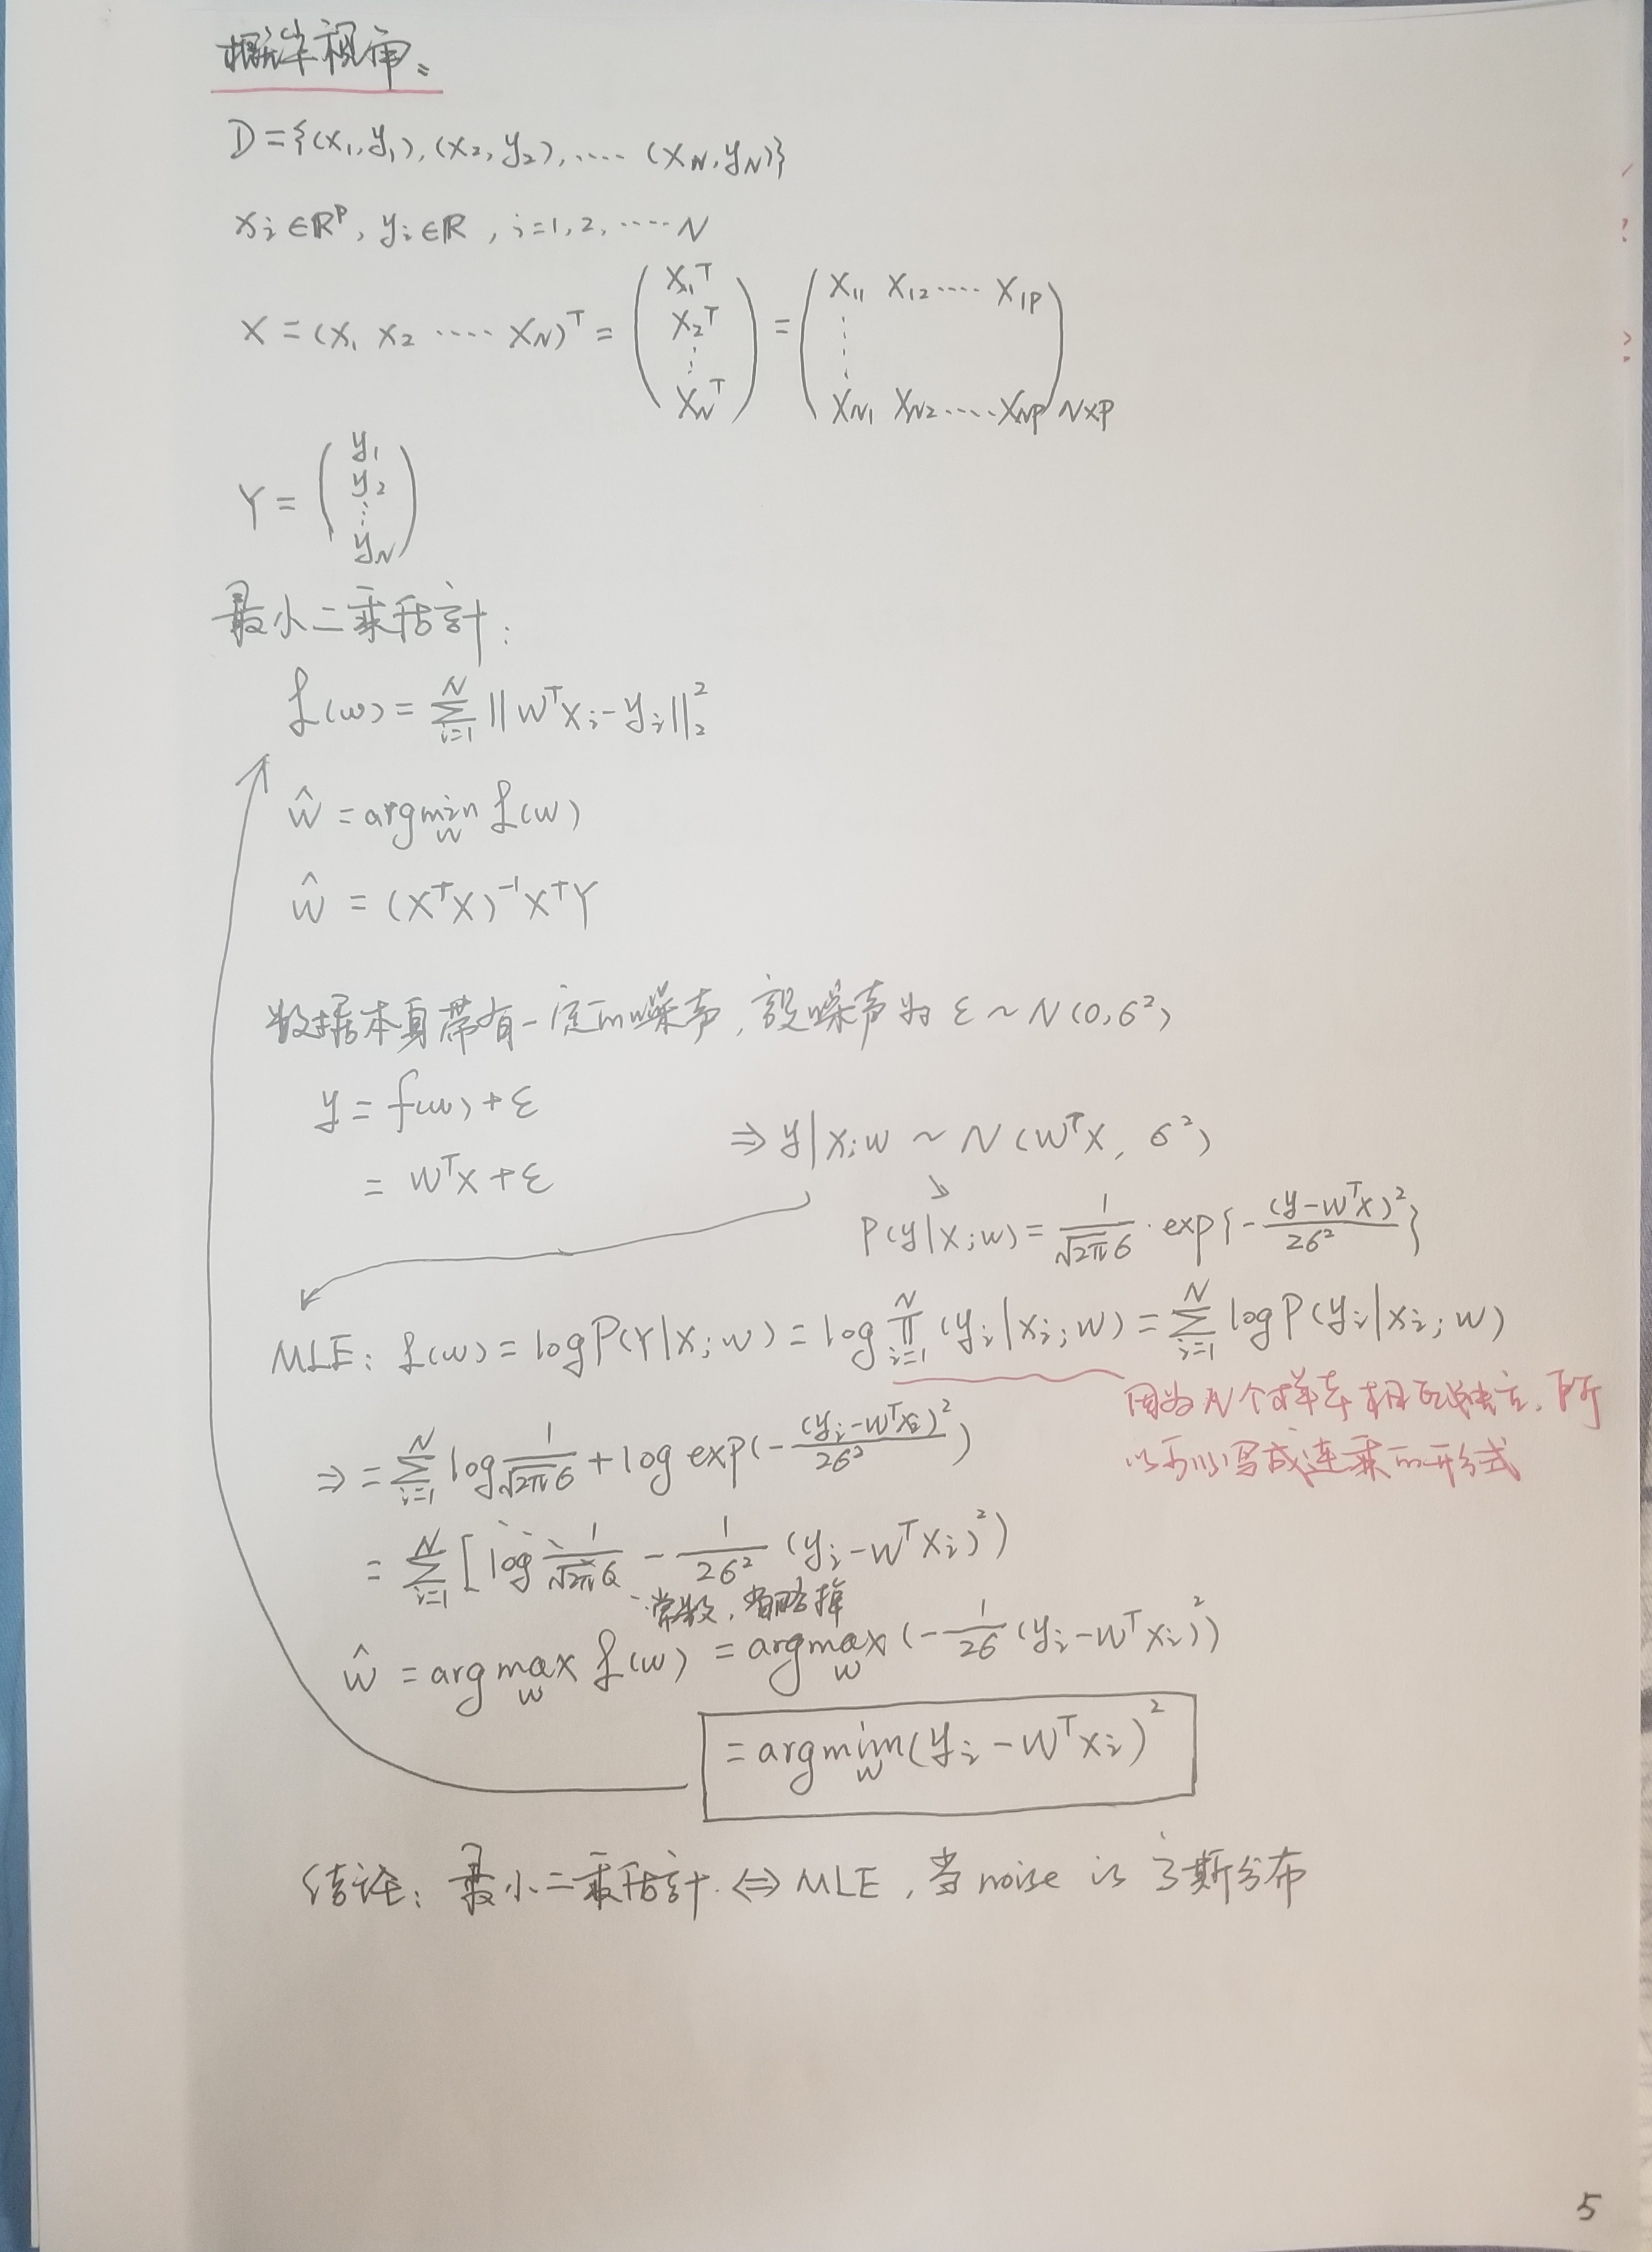 概率视角:
D={(x₁,y₁),(x₂,y₂),····(x_N,y_N)}
xᵢ∈ℝᵖ, yᵢ∈ℝ, i=1,2,····N
X=(x₁ x₂ ···· x_N)ᵀ = (x₁ᵀ x₂ᵀ ⋮ x_Nᵀ) = (x₁₁ x₁₂ ···· x₁p ⋮ x_N₁ x_N₂ ···· x_Np) N×P
Y = (y₁ y₂ ⋮ y_N)
最小二乘估計:
ℒ(w) = Σ_{i=1}^{N} ||Wᵀxᵢ-yᵢ||₂²
ŵ = argmin_w ℒ(w)
ŵ = (XᵀX)⁻¹XᵀY
数据本身带有一定的噪声, 設噪声为 ε~N(0,σ²)
y = f(w)+ε
= WᵀX+ε
⇒ y|x;w ~ N(WᵀX, σ²)
P(y|x;w) = 1/(√2π σ) · exp{-(y-wᵀx)²/2σ²}
MLE: ℒ(w) = logP(Y|X;w) = log Π_{i=1}^{N} (yᵢ|xᵢ;w) = Σ_{i=1}^{N} logP(yᵢ|xᵢ;w)
因为N个样本相互独立, 所
以可以写成连乘的形式
⇒ = Σ_{i=1}^{N} log 1/(√2π σ) + log exp(-(yᵢ-wᵀxᵢ)²/2σ²)
= Σ_{i=1}^{N} [log 1/(√2π σ) - 1/2σ² (yᵢ-wᵀxᵢ)²)
常数, 省略掉
ŵ = argmax_w ℒ(w) = argmax_w (-1/2σ (yᵢ-wᵀxᵢ)²)
= argmin_w (yᵢ-wᵀxᵢ)²
结论: 最小二乘估計 ⇔ MLE, 当noise is 高斯分布
5